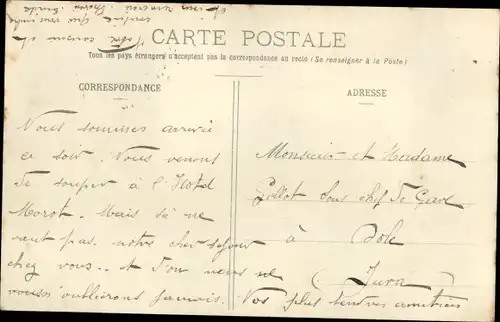 CARTE POSTALE
Tous les pays étrangers n'acceptent pas la correspondance au recto (Se renseigner à la Poste)
CORRESPONDANCE
ADRESSE
Nous sommes arrivé
ce soir. Nous venons
de souper à l'Hotel
Morot. Mais sà ne
vaut pas notre cher séjour
chez vous.. et d'où nous ne
vousss oublierons jamais. Vos plus tendres amitiées
Monsieur et Madame
Gellot Sous chef de Gare
à Dole
(Jura)